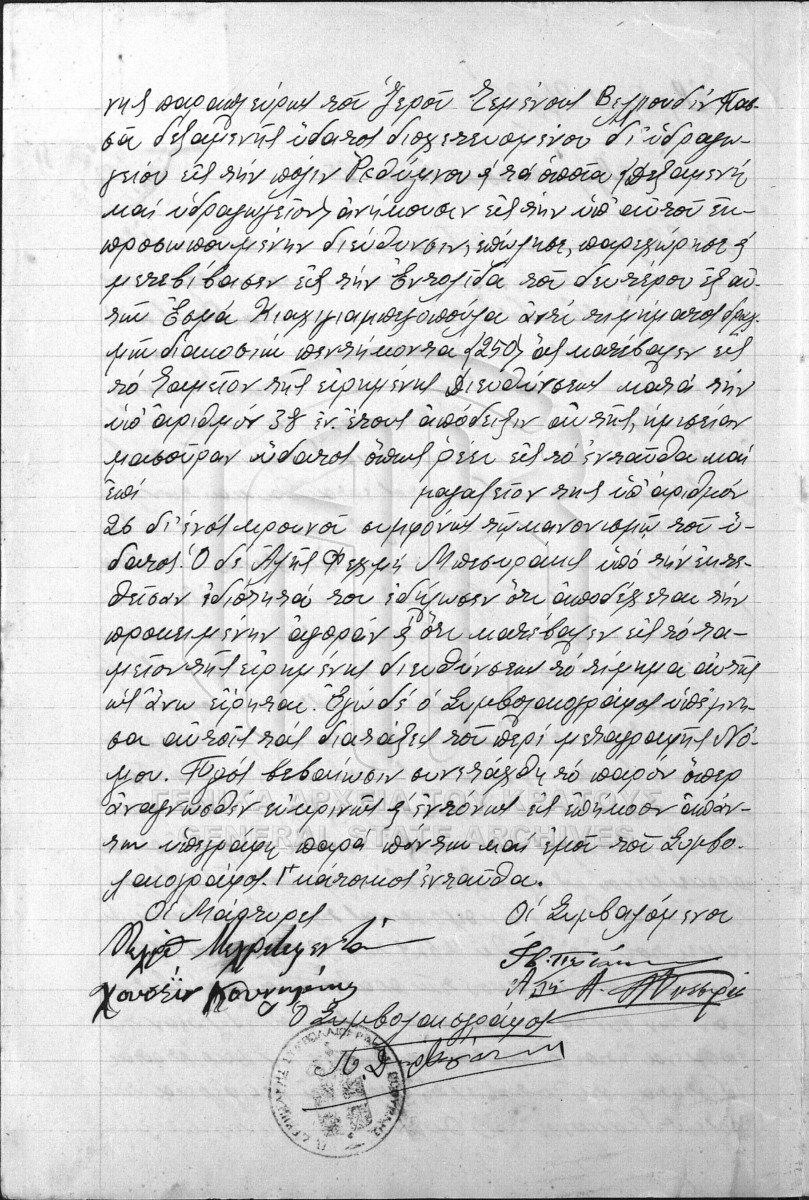 νης παραπλεύρως τοῦ Ἱεροῦ Τεμένους Βελῆουδὶν Πασ-
σᾶ δεξαμενῆς ὕδατος διοχετευομένου δι' ὑδραγω-
γείου εἰς τὴν πόλιν Ρεθύμνου & τὰ ὁποῖα (δεξαμενὴ
καὶ ὑδραγωγεῖον) ἀνήκουσιν εἰς τὴν ὑπ' αὐτοῦ ἐκ-
προσωπουμένην διεύθυνσιν, ἐπώλησε, παρεχώρησε &
μετεβίβασεν εἰς τὴν ἐντολίδα τοῦ δευτέρου ἐξ αὐ-
τῶν Ἐσμᾶ ἀντὶ τιμήματος δραχ-
μῶν διακοσίων πεντήκοντα (250) ἃς κατέβαλεν εἰς
τὸ Ταμεῖον τῆς εἰρημένης Διευθύνσεως κατὰ τὴν
ὑπ' ἀριθμὸν 38 ἐν. ἔτους ἀπόδειξιν αὐτῆς, ἡμισείαν
μασούραν ὕδατος ὅπως ρέει εἰς τὸ ἐνταῦθα καὶ
ἐπὶ μαγαζεῖον της ὑπ' ἀριθμὸν
26 δι' ἑνὸς κρουνοῦ συμφώνως τῷ κανονισμῷ τοῦ ὕ-
δατος. Ὁ δὲ Ἀλῆς Φεχμῆ ὑπὸ τὴν ἐκτε-
θεῖσαν ἰδιότητά του ἐδήλωσεν ὅτι ἀποδέχεται τὴν
προκειμένην ἀγορὰν & ὅτι κατέβαλεν εἰς τὸ τα-
μεῖον τῆς εἰρημένης διευθύνσεως τὸ τίμημα αὐτῆς
ὡς ἄνω εἴρηται. Ἐγὼ δὲ ὁ Συμβολαιογράφος ὑπέμνη-
σα αὐτοῖς τὰς διατάξεις τοῦ περὶ μεταγραφῆς Νό-
μου. Πρὸς βεβαίωσιν συνετάχθη τὸ παρὸν ὅπερ
ἀναγνωσθὲν εὐκρινῶς & ἐντόνως εἰς ἐπήκοον ἁπάν-
των ὑπεγράφη παρὰ πάντων καὶ ἐμοῦ τοῦ Συμβο-
λαιογράφου. κάτοικος ἐνταῦθα.
Οἱ Μάρτυρες Οἱ Συμβαλόμενοι
Χουσεΐν
Ὁ Συμβολαιογράφος
ΓΕΝΙΚΑ ΑΡΧΕΙΑ ΤΟΥ ΚΡΑΤΟΥΣ
GENERAL STATE ARCHIVES